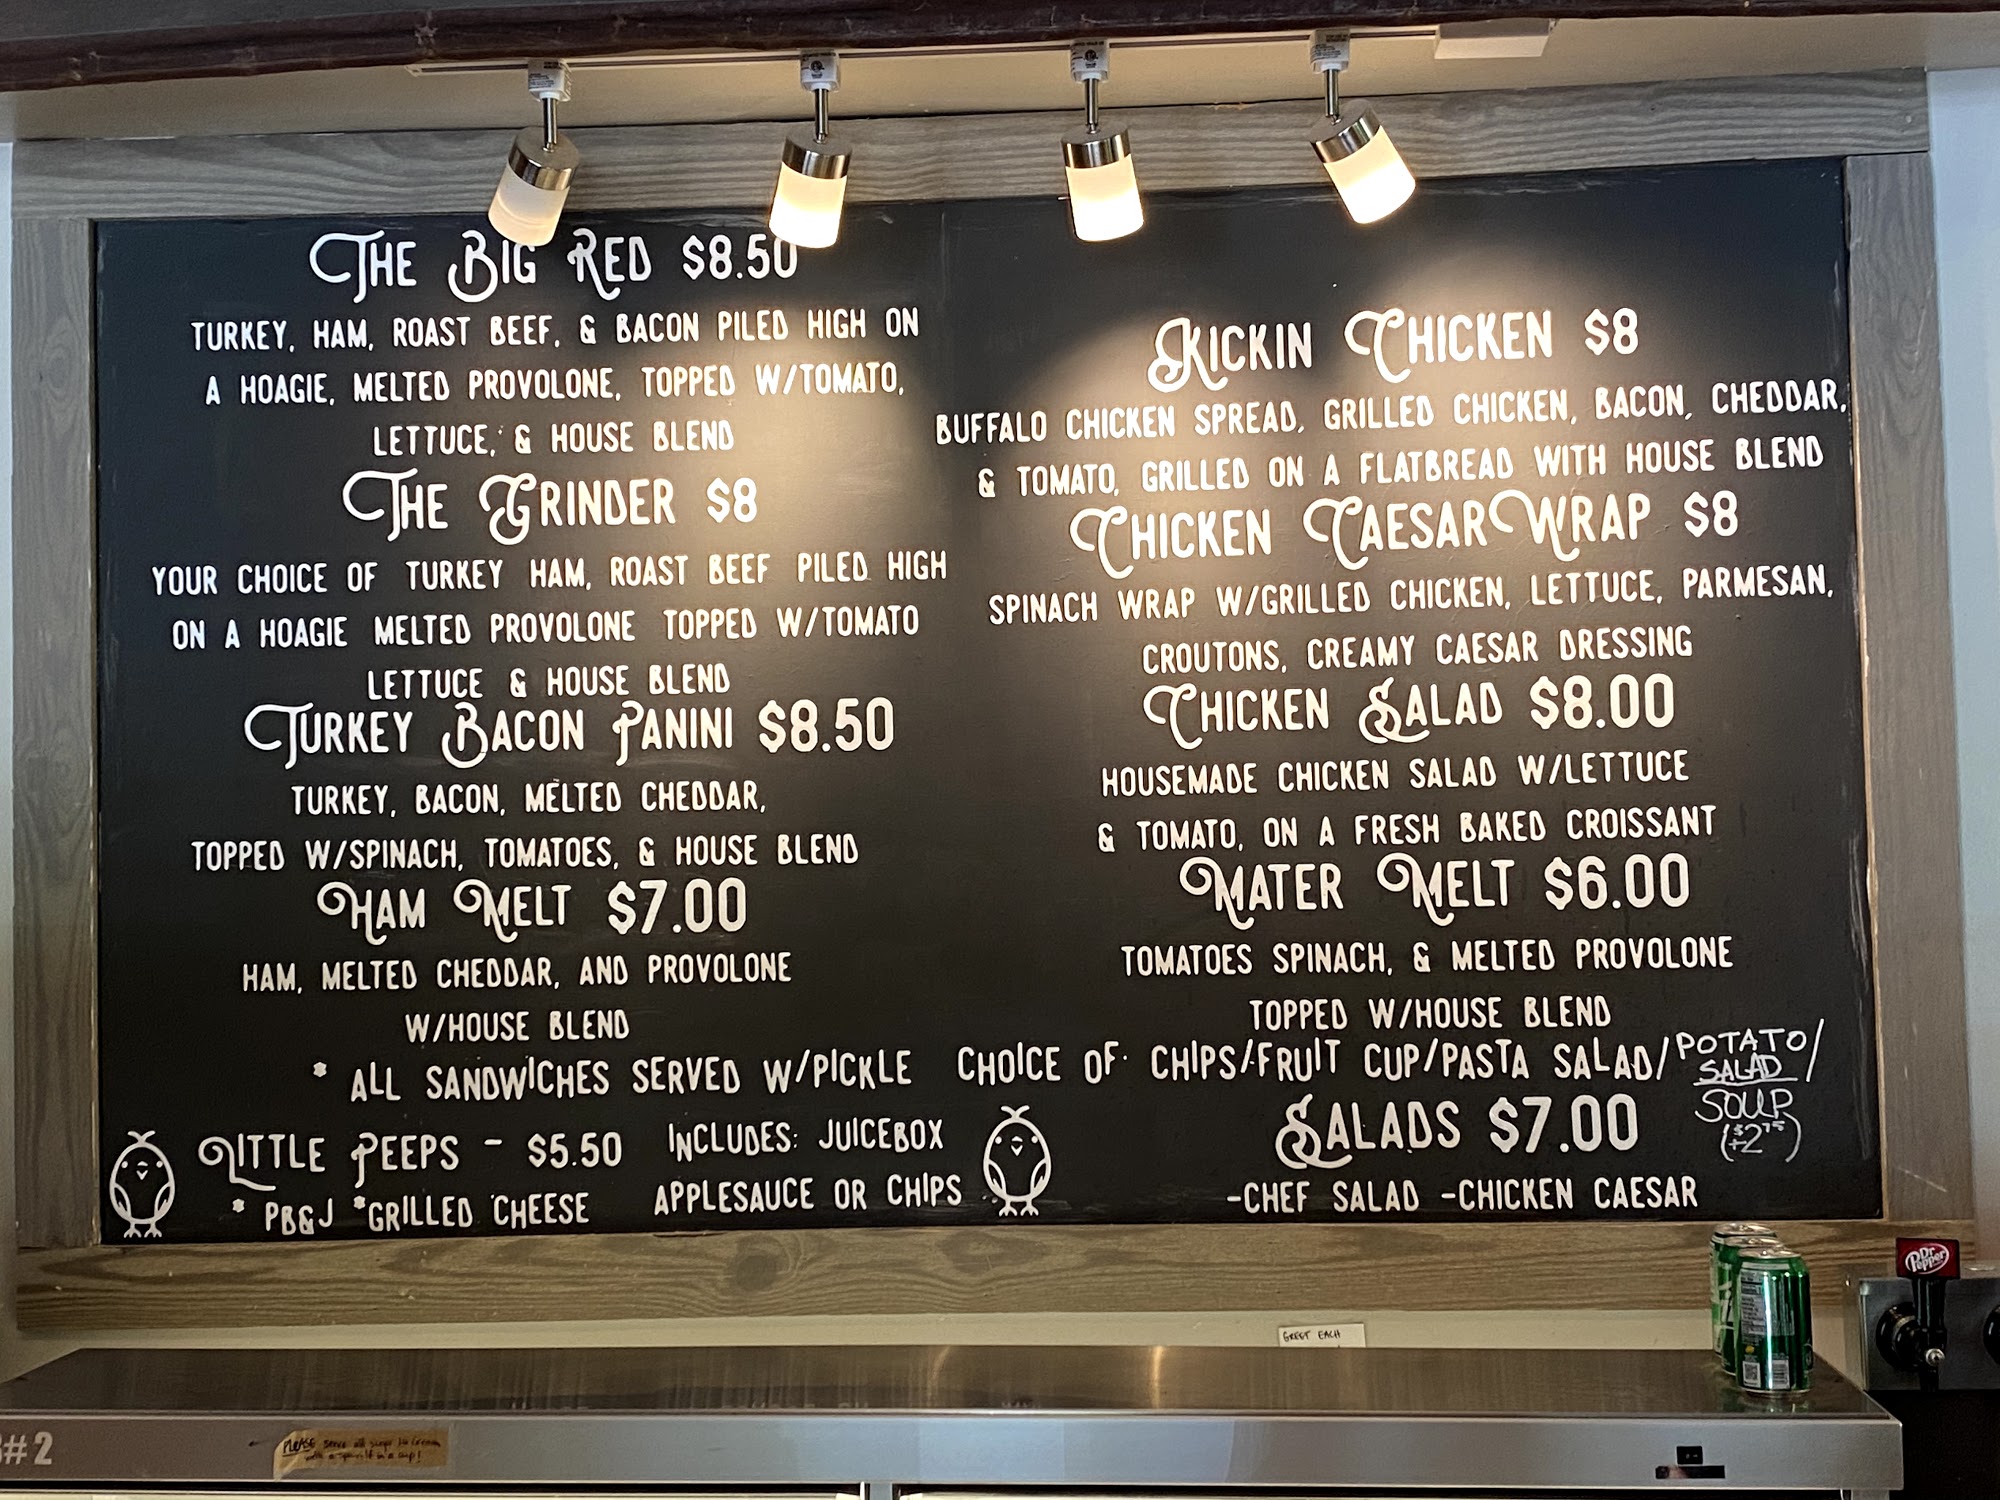 The Big Red $8.50
TURKEY, HAM, ROAST BEEF, & BACON PILED HIGH ON
A HOAGIE, MELTED PROVOLONE, TOPPED W/TOMATO,
LETTUCE, & HOUSE BLEND
The Grinder $8
YOUR CHOICE OF TURKEY HAM, ROAST BEEF PILED HIGH
ON A HOAGIE MELTED PROVOLONE TOPPED W/TOMATO
LETTUCE & HOUSE BLEND
Turkey Bacon Panini $8.50
TURKEY, BACON, MELTED CHEDDAR,
TOPPED W/SPINACH, TOMATOES, & HOUSE BLEND
Ham Melt $7.00
HAM, MELTED CHEDDAR, AND PROVOLONE
W/HOUSE BLEND
Kickin Chicken $8
BUFFALO CHICKEN SPREAD, GRILLED CHICKEN, BACON, CHEDDAR,
& TOMATO, GRILLED ON A FLATBREAD WITH HOUSE BLEND
Chicken Caesar Wrap $8
SPINACH WRAP W/GRILLED CHICKEN, LETTUCE, PARMESAN,
CROUTONS, CREAMY CAESAR DRESSING
Chicken Salad $8.00
HOUSEMADE CHICKEN SALAD W/LETTUCE
& TOMATO, ON A FRESH BAKED CROISSANT
Mater Melt $6.00
TOMATOES SPINACH, & MELTED PROVOLONE
TOPPED W/HOUSE BLEND
* ALL SANDWICHES SERVED W/PICKLE CHOICE OF CHIPS/FRUIT CUP/PASTA SALAD/POTATO/
SALAD
SOUP
(+$2.75)
Little Peeps - $5.50
* PB&J *GRILLED CHEESE
INCLUDES: JUICEBOX
APPLESAUCE OR CHIPS
Salads $7.00
-CHEF SALAD -CHICKEN CAESAR
Dr Pepper
GREET EACH
#2
PLEASE serve all